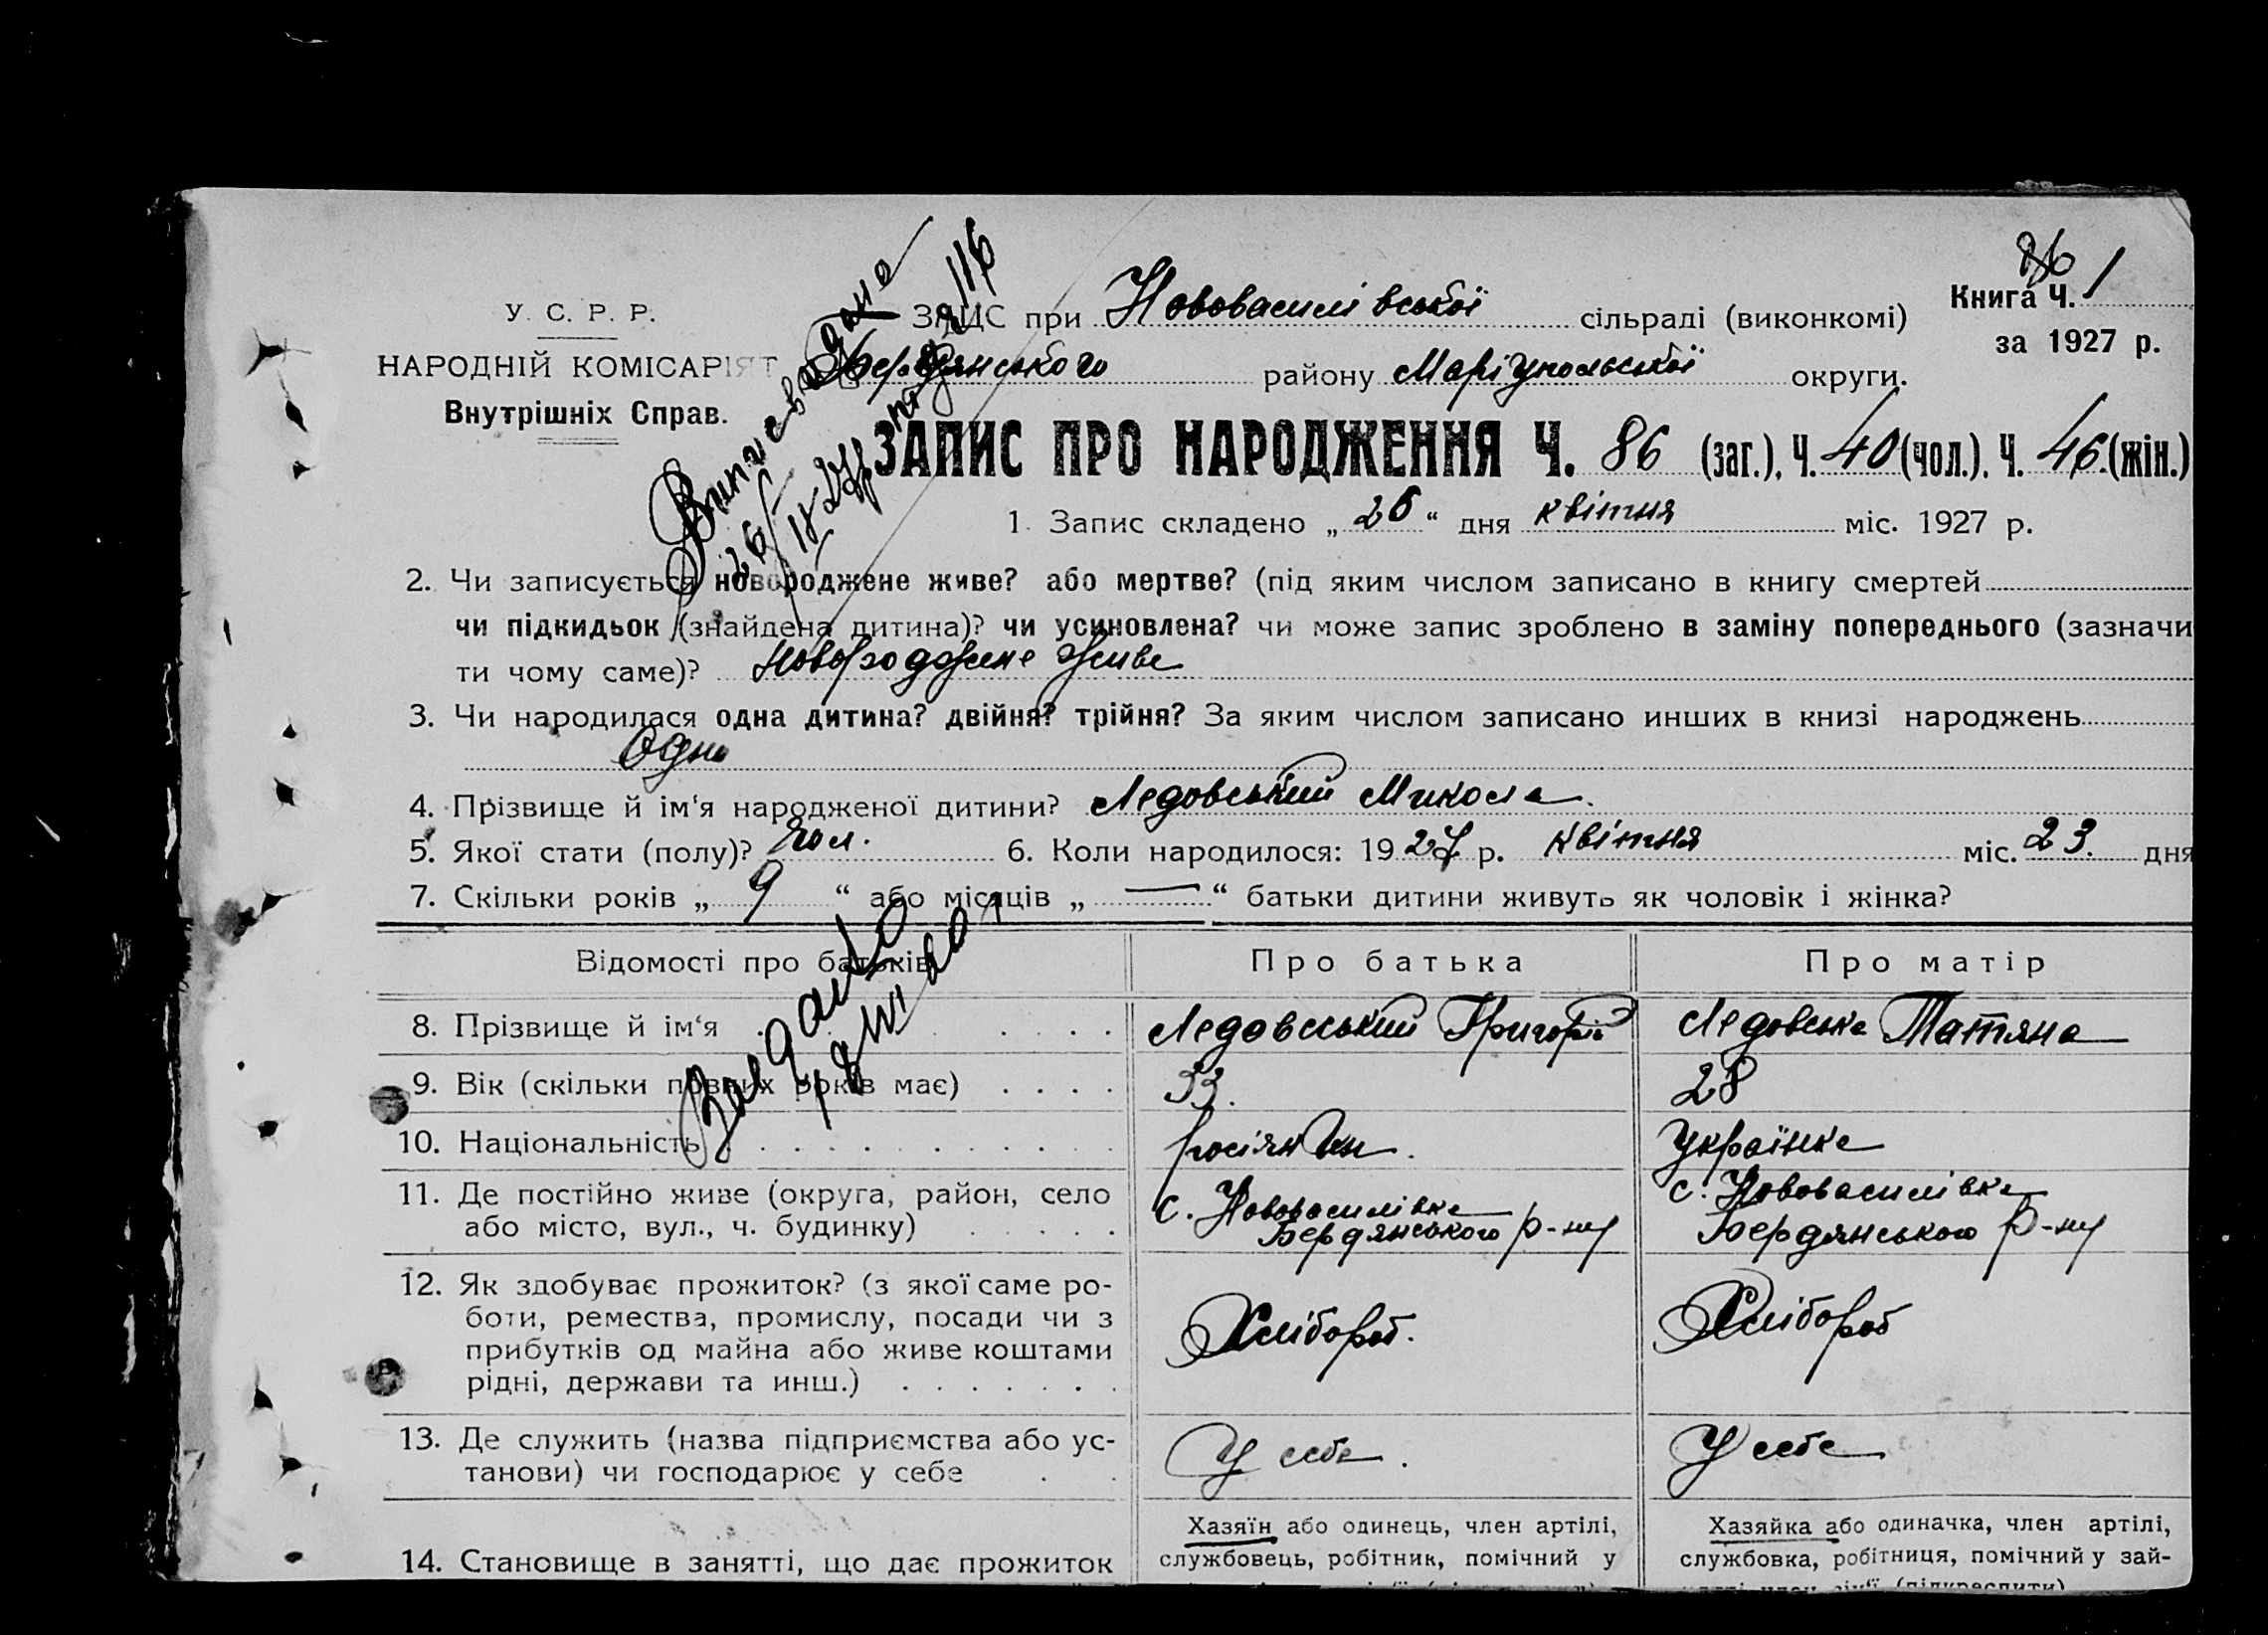 86
Книга Ч. 1
за 1927 р.
У. С. Р. Р.
НАРОДНІЙ КОМІСАРІЯТ
Внутрішніх Справ.
ЗАЦС при Нововасилівської сільраді (виконкомі)
Бердянського району Маріупольської округи.
Виписка дана
26/IV-27р.
116
ЗАПИС ПРО НАРОДЖЕННЯ Ч. 86 (заг.), Ч. 40 (чол.), Ч. 46 (жін.)
1. Запис складено „ 26 “ дня квітня міс. 1927 р.
2. Чи записується новороджене живе? або мертве? (під яким числом записано в книгу смертей
чи підкидьок (знайдена дитина)? чи усиновлена? чи може запис зроблено в заміну попереднього (зазначи
ти чому саме)? Новороджене живе
3. Чи народилася одна дитина? двійня? трійня? За яким числом записано инших в книзі народжень
одна
4. Прізвище й ім‘я народженої дитини? Ледовський Микола.
5. Якої стати (полу)? чол. 6. Коли народилося: 1927 р. квітня міс. 23 дня
7. Скільки років „ 9 “ або місяців „ — “ батьки дитини живуть як чоловік і жінка?
Відомості про батьків Про батька Про матір
8. Прізвище й ім‘я . . . . Ледовський Григорій Ледовська Татяна
9. Вік (скільки повних років має) . . . . 33. 28
10. Національність . . . . росіянин. Українка
11. Де постійно живе (округа, район, село
або місто, вул., ч. будинку) . . . . .
с. Нововасилівка
Бердянського р-ну
с. Нововасилівка
Бердянського р-ну
12. Як здобуває прожиток? (з якої саме ро-
боти, ремества, промислу, посади чи з
прибутків од майна або живе коштами
рідні, держави та инш.) . . . . . . .
Хлібороб.
Хлібороб
13. Де служить (назва підприємства або ус-
танови) чи господарює у себе . .
У себе.
У себе
14. Становище в занятті, що дає прожиток
Хазяїн або одинець, член артілі,
службовець, робітник, помічний у
Хазяйка або одиначка, член артілі,
службовка, робітниця, помічний у зай-
(підкреслити)